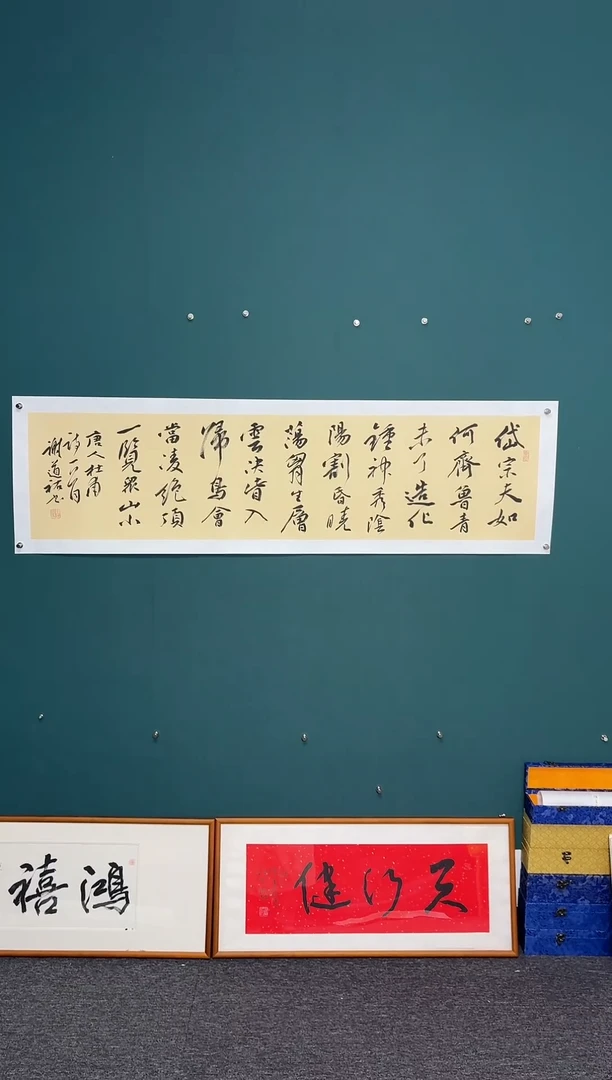 岱宗夫如
何齊魯青
未了造化
鍾神秀陰
陽割昏曉
蕩胸生層
雲決眥入
歸鳥會
當凌絕頂
一覽眾山小
唐人杜甫
詩一首
謝道
鴻禧
天行健